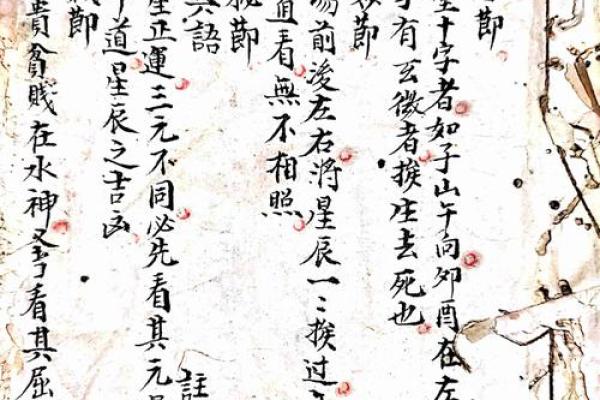 節
星十字者如子山午向卯酉在左
有玄微者挨生去死也
節
前後左右將星辰一〻挨過
直看無不相照
節
語
註
星正運三元不同必先看其元
道星辰之吉凶
節
貴貧賤在水神又看其屈